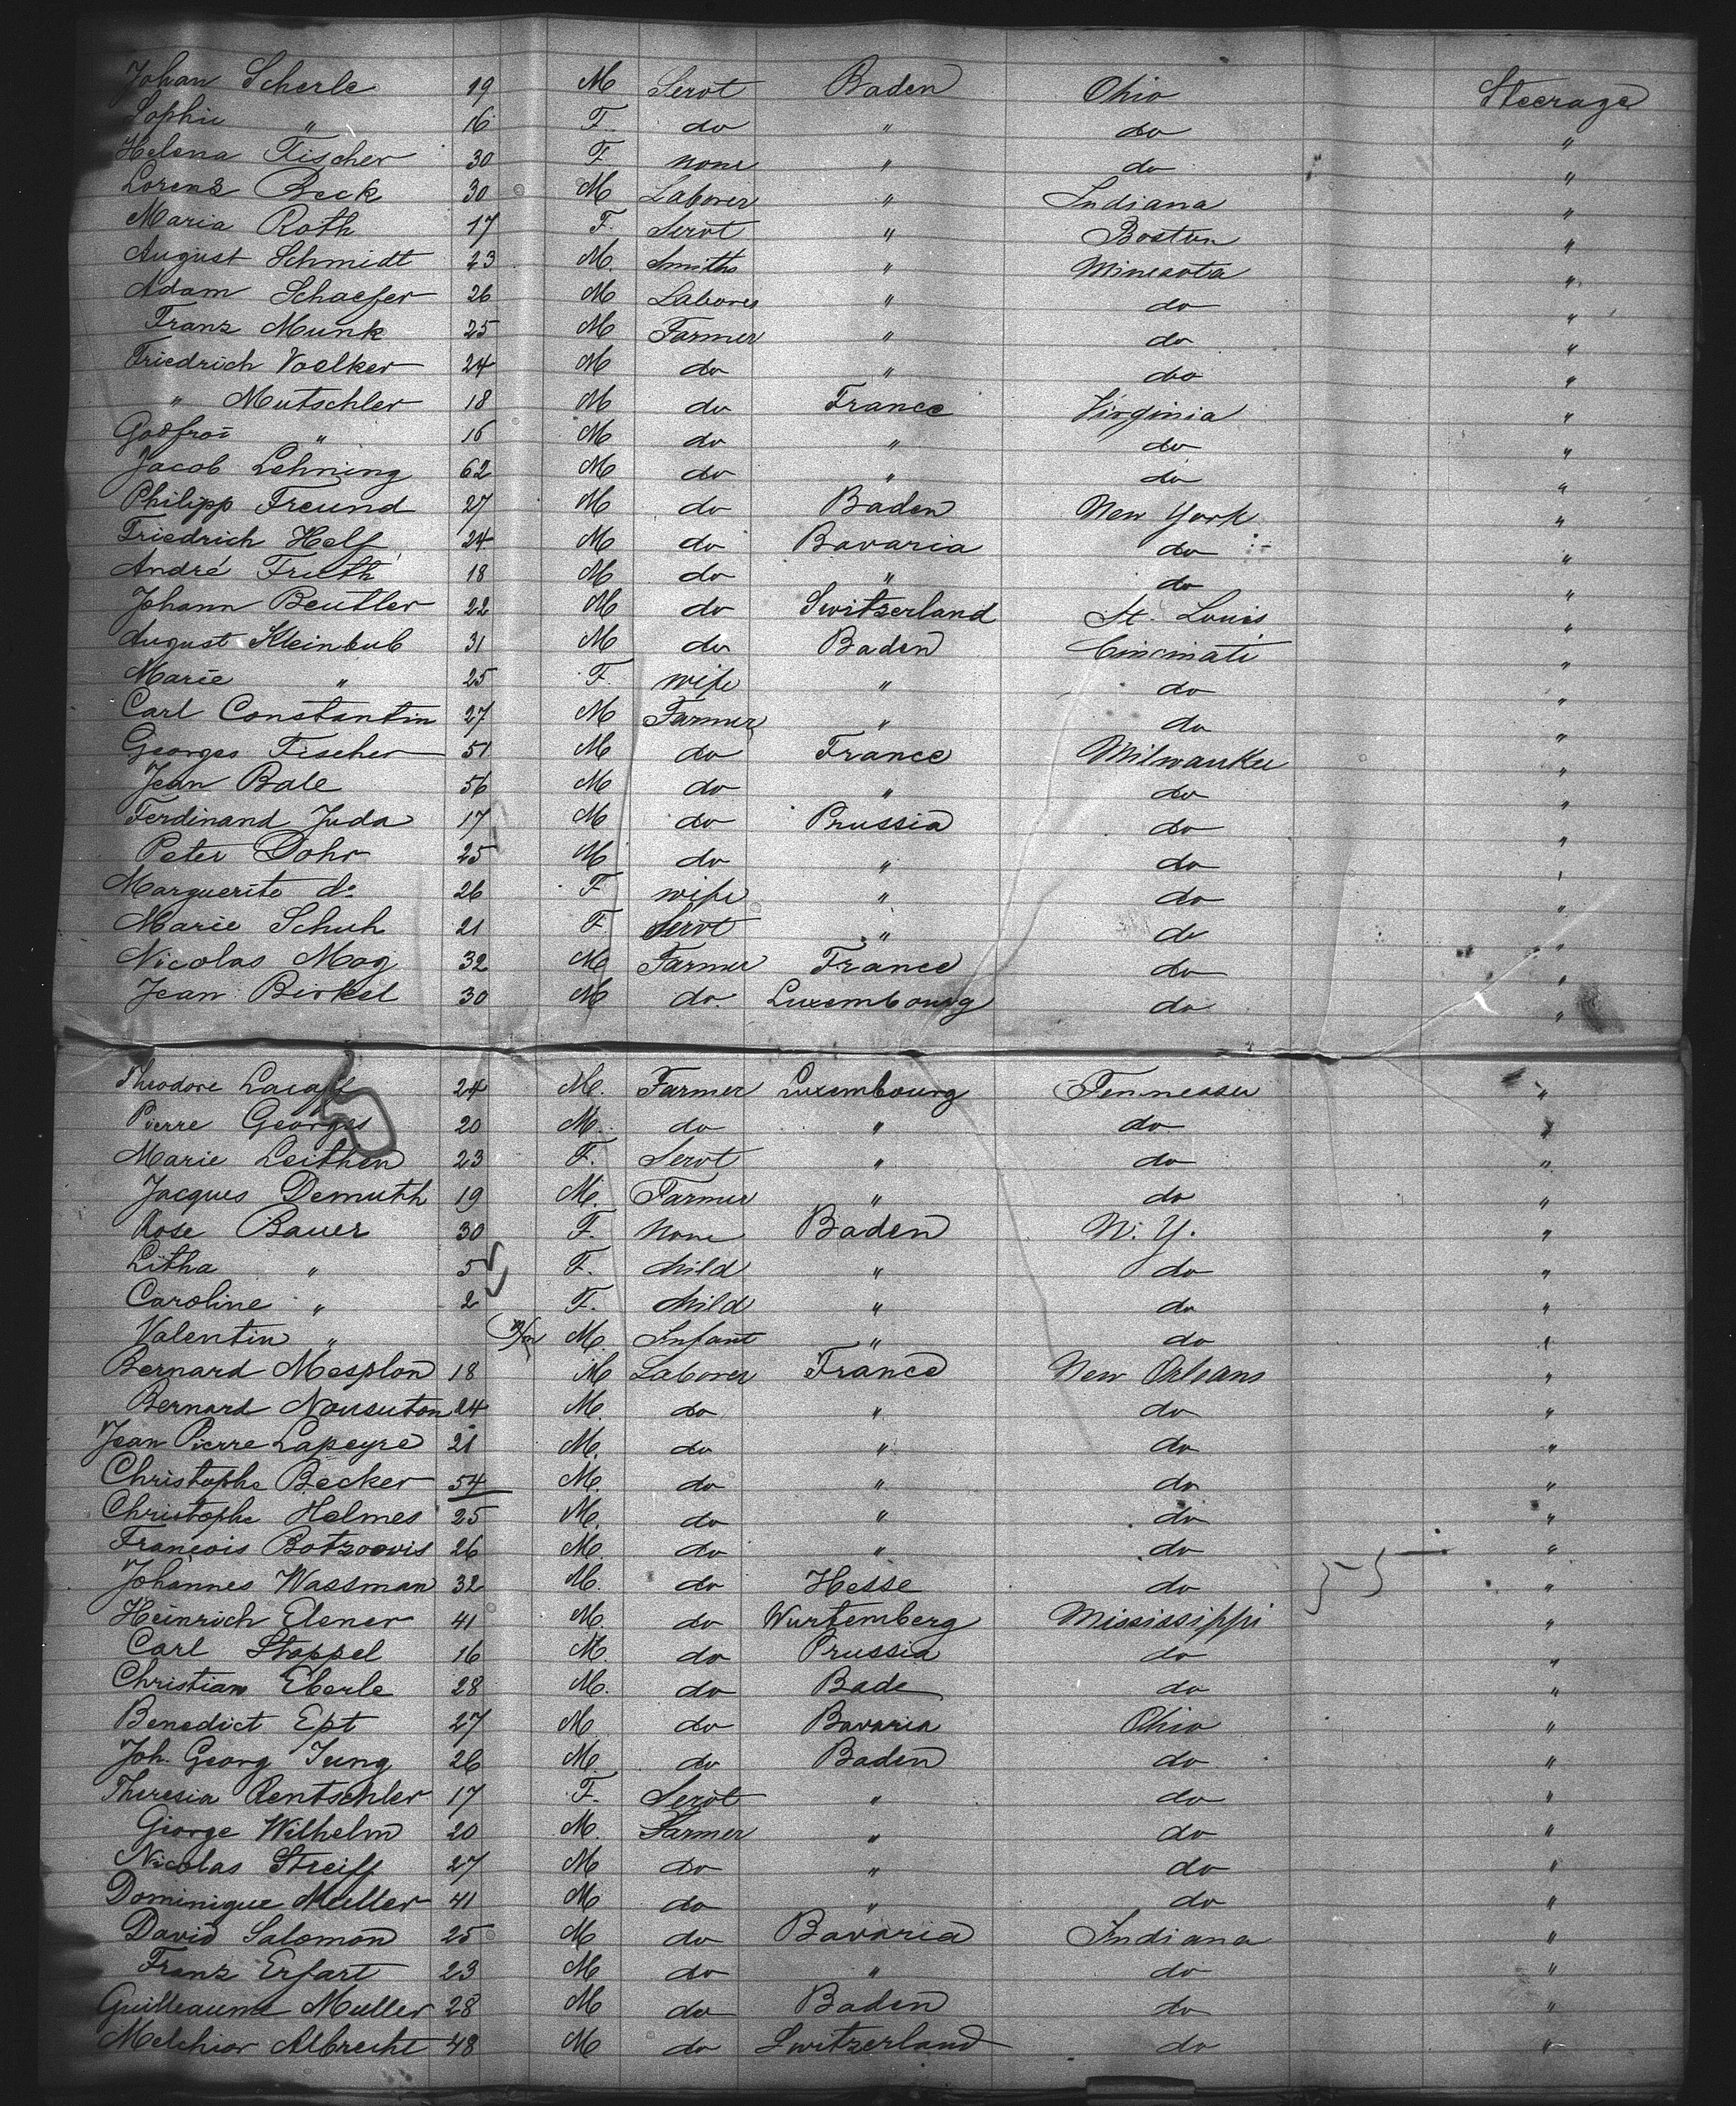 Johan Scherle 19 M Servt Baden Ohio Steerage
Sophie " 16 F do " do "
Helena Fischer 30 F none " do "
Lorenz Beck 30 M Laborer " Indiana "
Maria Roth 17 F Servt " Boston "
August Schmidt 23 M. Smiths " Minesota "
Adam Schaefer 26 M Laborer " do "
Franz Munk 25 M Farmer " do "
Friedrich Voelker 24 M do " do "
" Mutschler 18 M do France Virginia "
Godfroi " 16 M do " do "
Jacob Lehning 62 M do " do "
Philipp Freund 27 M do Baden New York "
Friedrich Helf 24 M do Bavaria do "
André Fruth 18 M do " do "
Johann Beutler 22 M do Switzerland St. Louis "
August Kleinbub 31 M do Baden Cincinati "
Marie " 25 F. wife " do "
Carl Constantin 27 M Farmer " do "
Georges Fischer 51 M do France Milwaukee "
Jean Bale 56 M do " do "
Ferdinand Juda 17 M do Prussia do "
Peter Dohr 25 M do " do "
Marguerite do 26 F wife " do "
Marie Schuh 21 F Servt " do "
Nicolas Mag 32 M Farmer France do "
Jean Birkel 30 M do. Luxembourg do "
Theodore 24 M. Farmer Luxembourg Tennessee "
Pierre Georges 20 M. do " do "
Marie Leithen 23 F. Servt " do "
Jacques Demuth 19 M. Farmer " do "
Rose Bauer 30 F. None Baden N. Y. "
Litha " 5 F. child " do "
Caroline " 2 F. child " do "
Valentin " M. Infant " do "
Bernard Mesplon 18 M Laborer France New Orleans "
Bernard Nousuton 24 M. do " do "
Jean Pierre Lapeyre 21 M. do " do "
Christophe Becker 54 M. do " do "
Christophe Helmes 25 M. do " do "
François Botzoovis 26 M. do " do "
Johannes Wassman 32 M. do Hesse do "
Heinrich Elener 41 M. do Wurtemberg Mississippi "
Carl Stoppel 16 M. do Prussia do "
Christian Eberle 28 M. do Bade do "
Benedict Ept 27 M. do Bavaria Ohio "
Joh. Georg Jung 26 M. do Baden do "
Theresia Rentschler 17 F. Servt " do "
George Wilhelm 20 M. Farmer " do "
Nicolas Streiff 27 M do " do "
Dominique Muller 41 M do " do "
David Salomon 25 M do Bavaria Indiana "
Franz Erfart 23 M do " do "
Guilleaume Muller 28 M do Baden do "
Melchior Albrecht 48 M do Switzerland do "